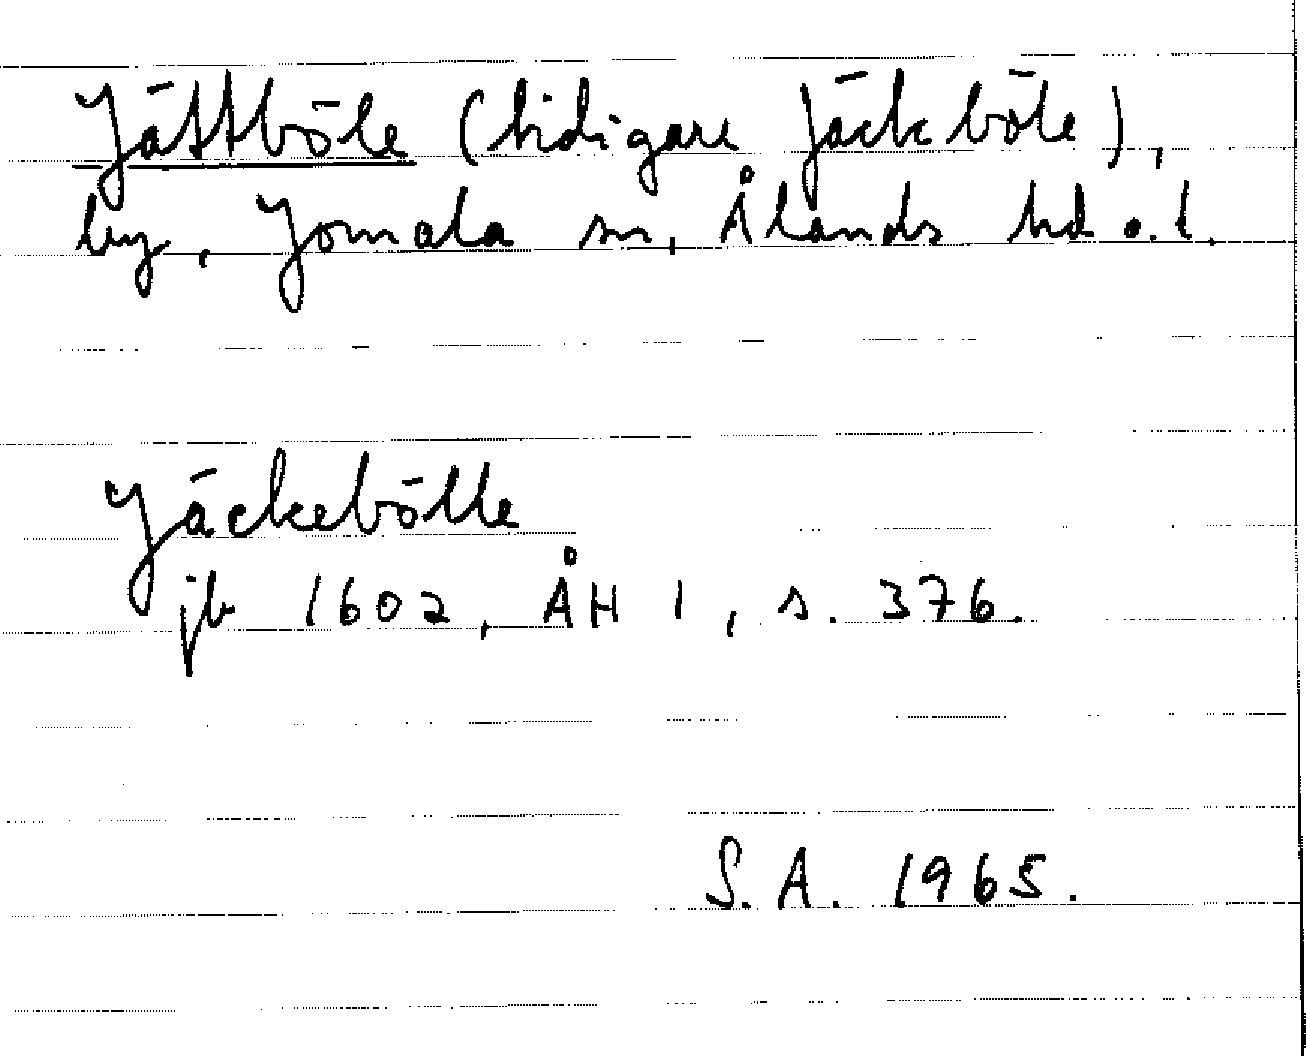 Jättböle (tidigare Jäckböle),
by, Jomala sn, Ålands hd o. l.
Jäckebölle
jb 1602, ÅH 1, s. 376.
S. A. 1965.